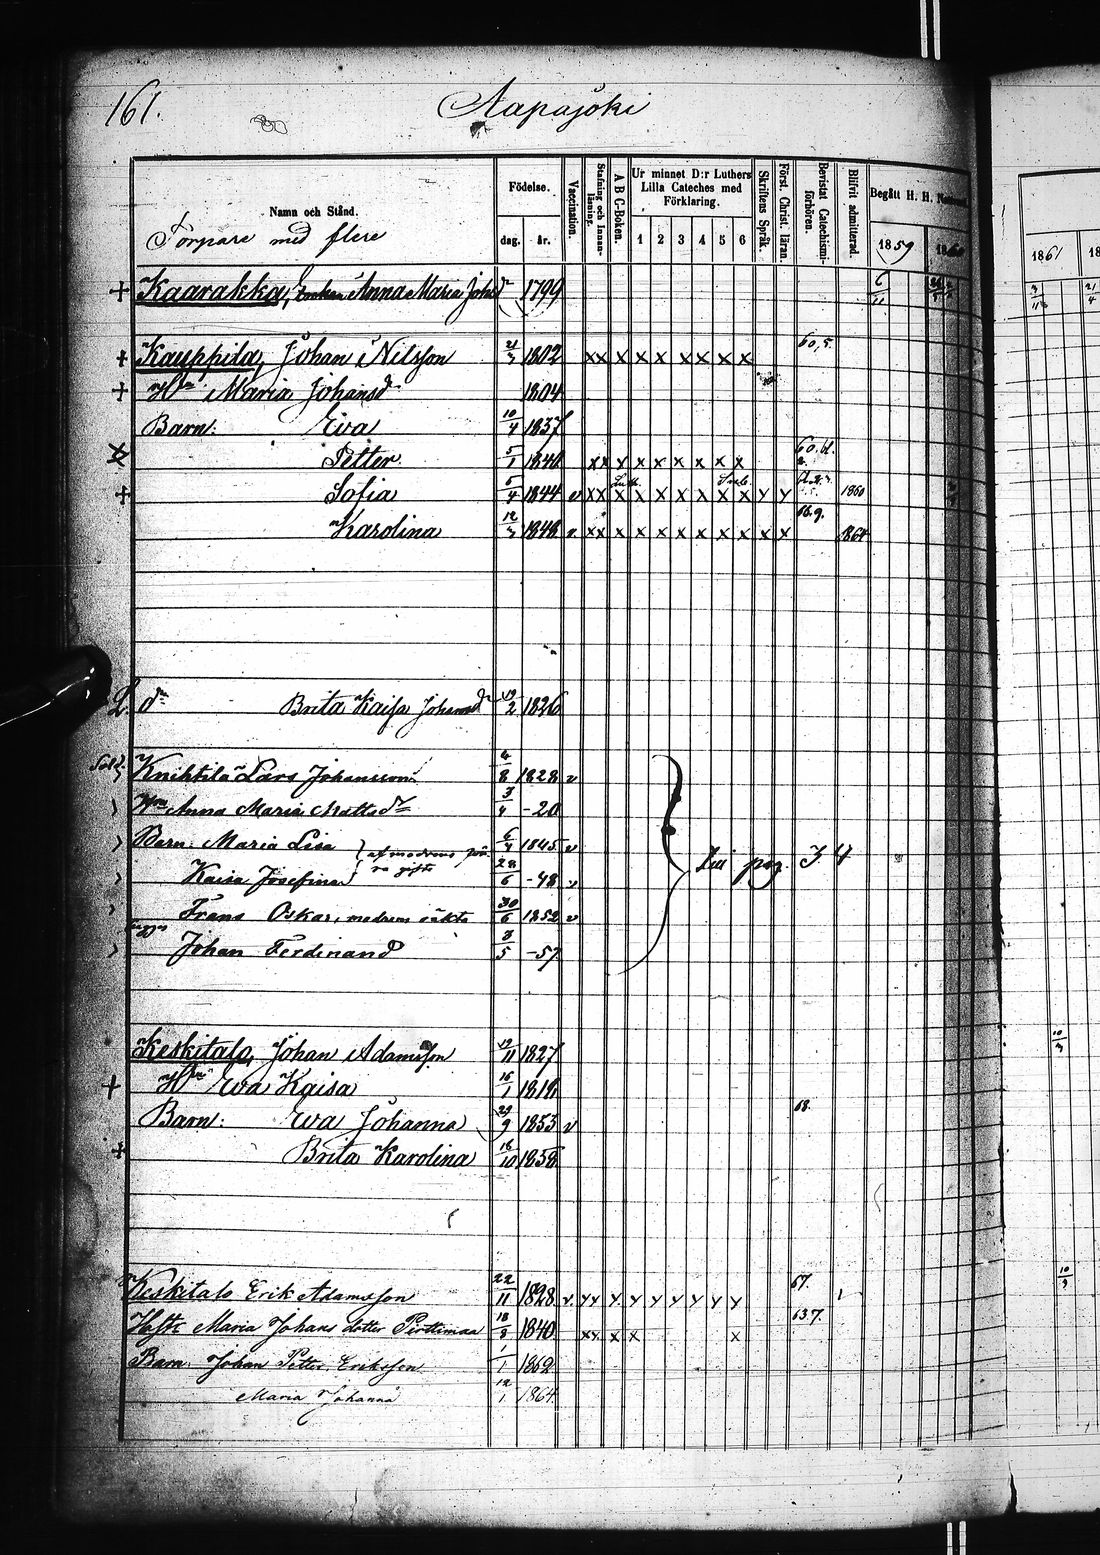 161. Aapajoki
Namn och Stånd.
Torpare med flere
Födelse.
dag. år.
Vaccination.
Stafning och Innanläsning.
A B C-Boken.
Ur minnet D:r Luthers Lilla Cateches med Förklaring.
1 2 3 4 5 6
Skriftens Språk.
Först. Christ. läran.
Bevistat Catechismiförhören.
Blifvit admitterad.
Begått H. H. Nattvard.
1859 1860
1861
+ Kaarakka, Enkan Anna Maria Johs dr 1799 6/11
+ Kauppila, Johan Nilsson 21/3 1802 x x x x x x x x x 60,5.
+ Hu Maria Johansdr 1804
Barn: Eva 10/4 1837
Petter 5/1 1840 x x x x x x x x x 60.61.
+ Sofia 5/4 1844 v x x x x x x x x x y y 1860
Karolina 12/3 1848 v. x x x x x x x x x x x 66.9. 1864
Brita Kaisa Johansdr 19/2 1826
Knihtilä Lars Johansson 4/8 1828 v
Hu Anna Maria Mattsdr 3/4 - 20
Barn: Maria Lisa 6/4 1845 v
af modrens förra gifte
Kaisa Josefina 28/6 - 48 v
Frans Oskar, modrens oäkta 30/6 1852 v
Johan Ferdinand 3/5 - 57
pag. 34
Keskitalo, Johan Adamsson 19/11 1827 10/3
+ Hu Eva Kaisa 16/1 1818
Barn: Eva Johanna 29/9 1853 v 68.
+ Brita Karolina 18/10 1858
Keskitalo Erik Adamsson 22/11 1828 v. y y y. y y y y y y 67. 10/3
Hustr. Maria Johans dotter Pirttimaa 18/8 1840 x x x x x 63.7.
Barn: Johan Petter Eriksson 1/1 1862
Maria Johanna 12/1 1864